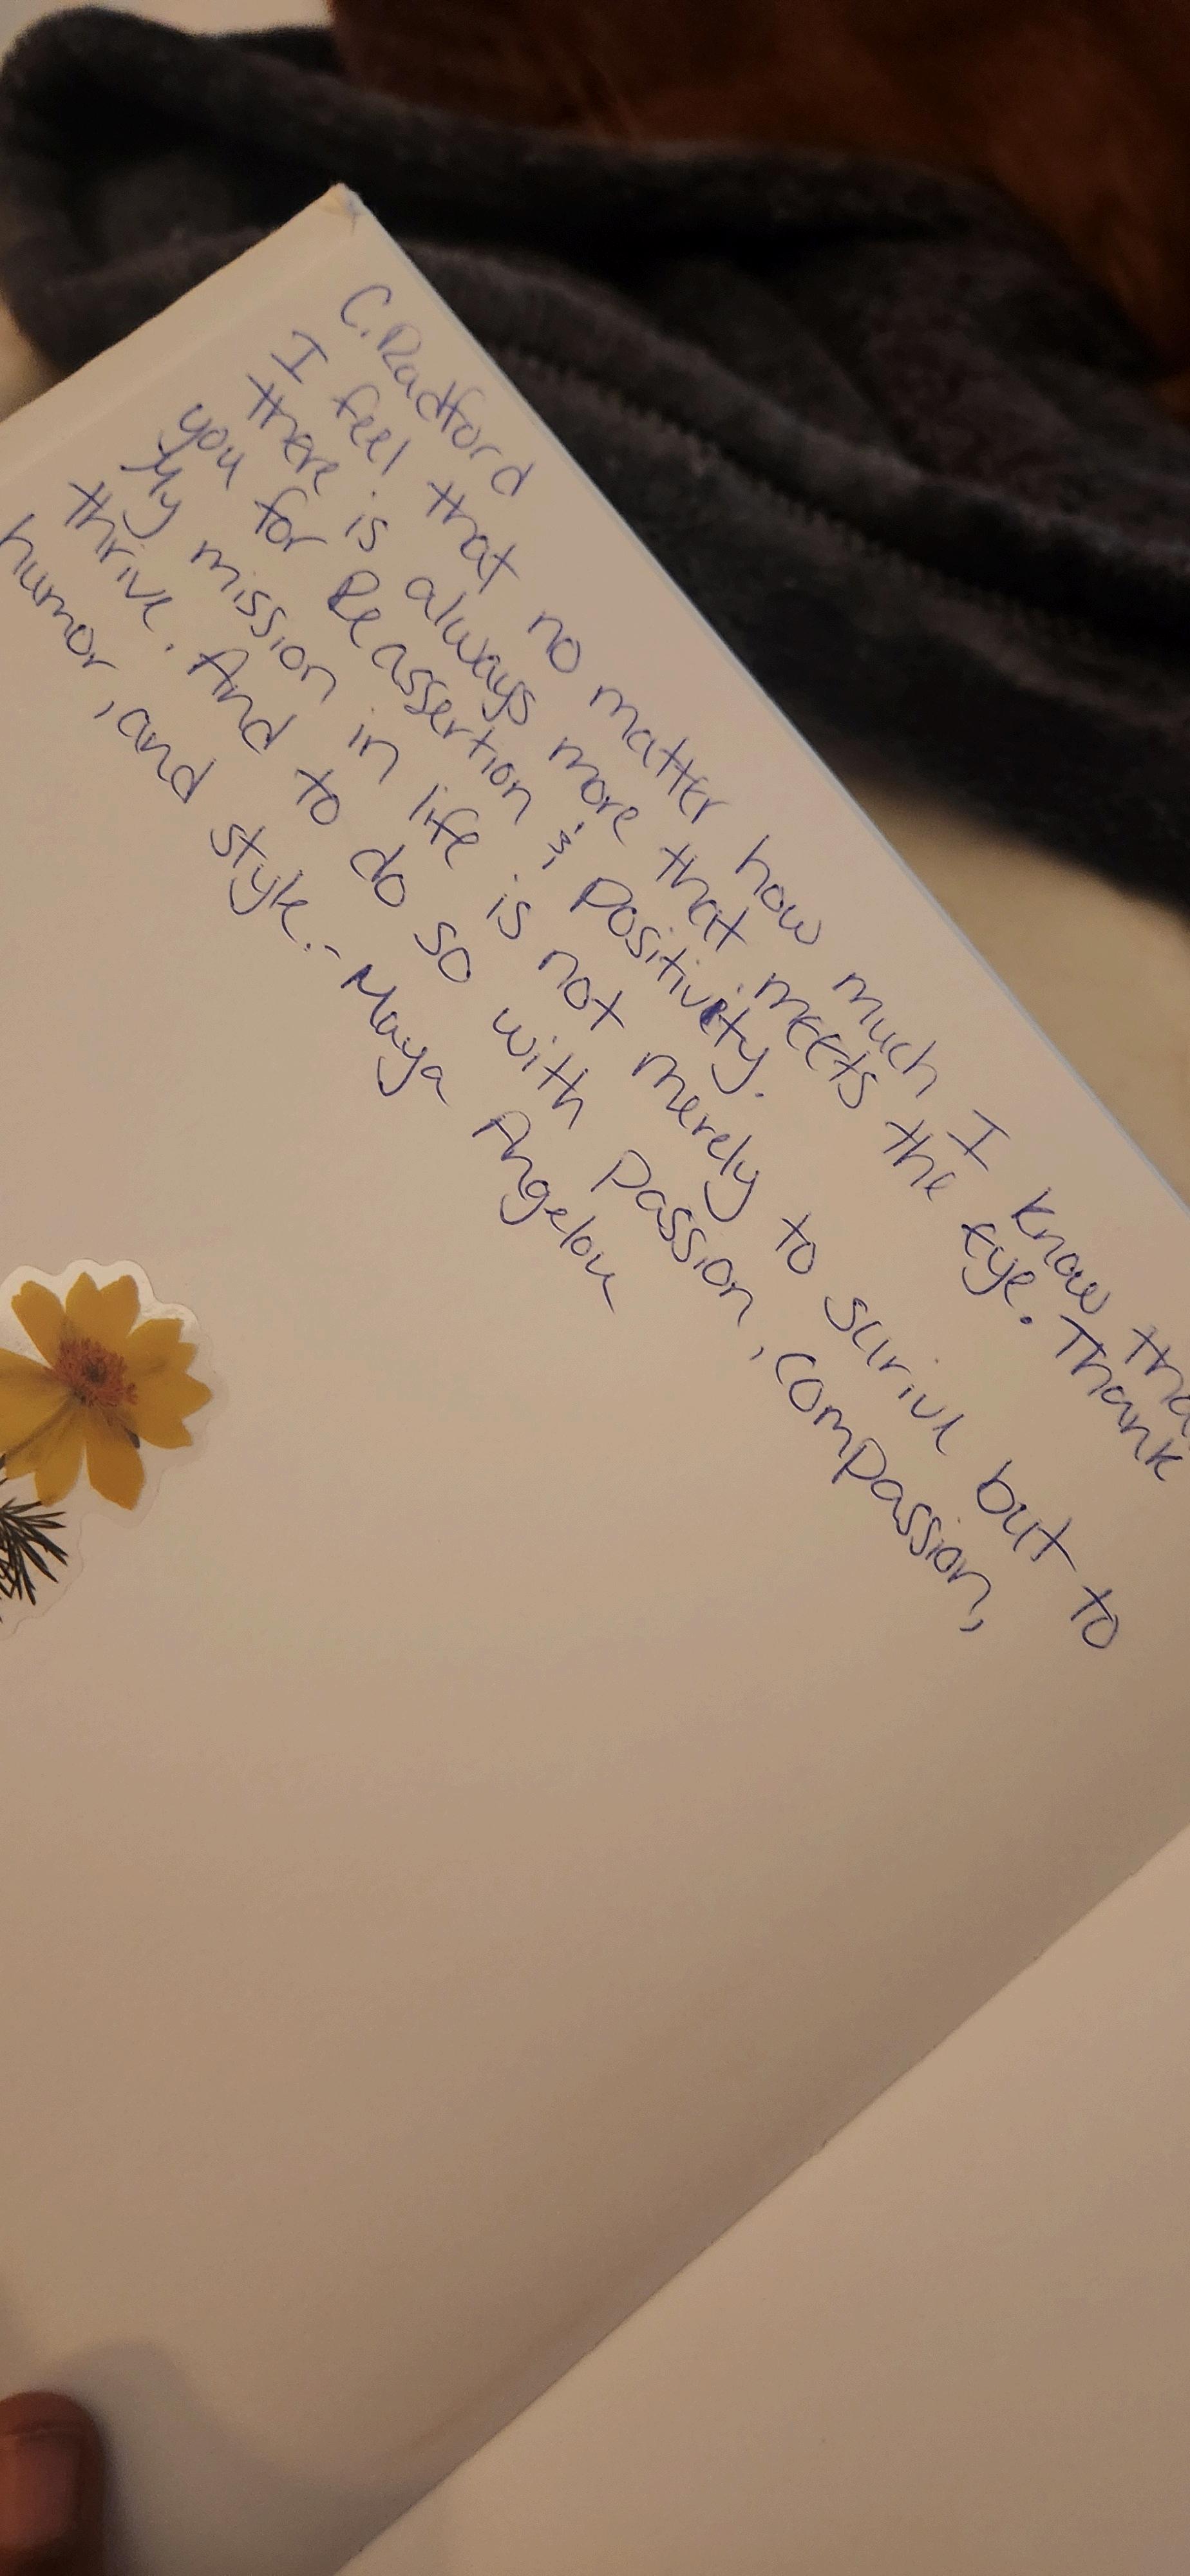 C. Radford
I feel that no matter how much I know tha
there is always more that meets the Eye. Thank
you for Reassertion & Positivity.
My mission in life is not merely to surive but to
thrive. And to do so with passion, compassion,
humor, and style. - Maya Angelou